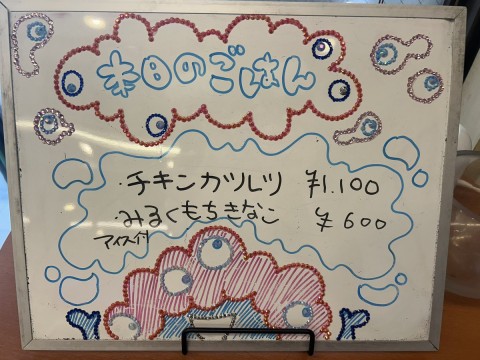 末日のごはん
・チキンカツレツ ¥1,100
・みるくもちきなこ ¥600
アイス付